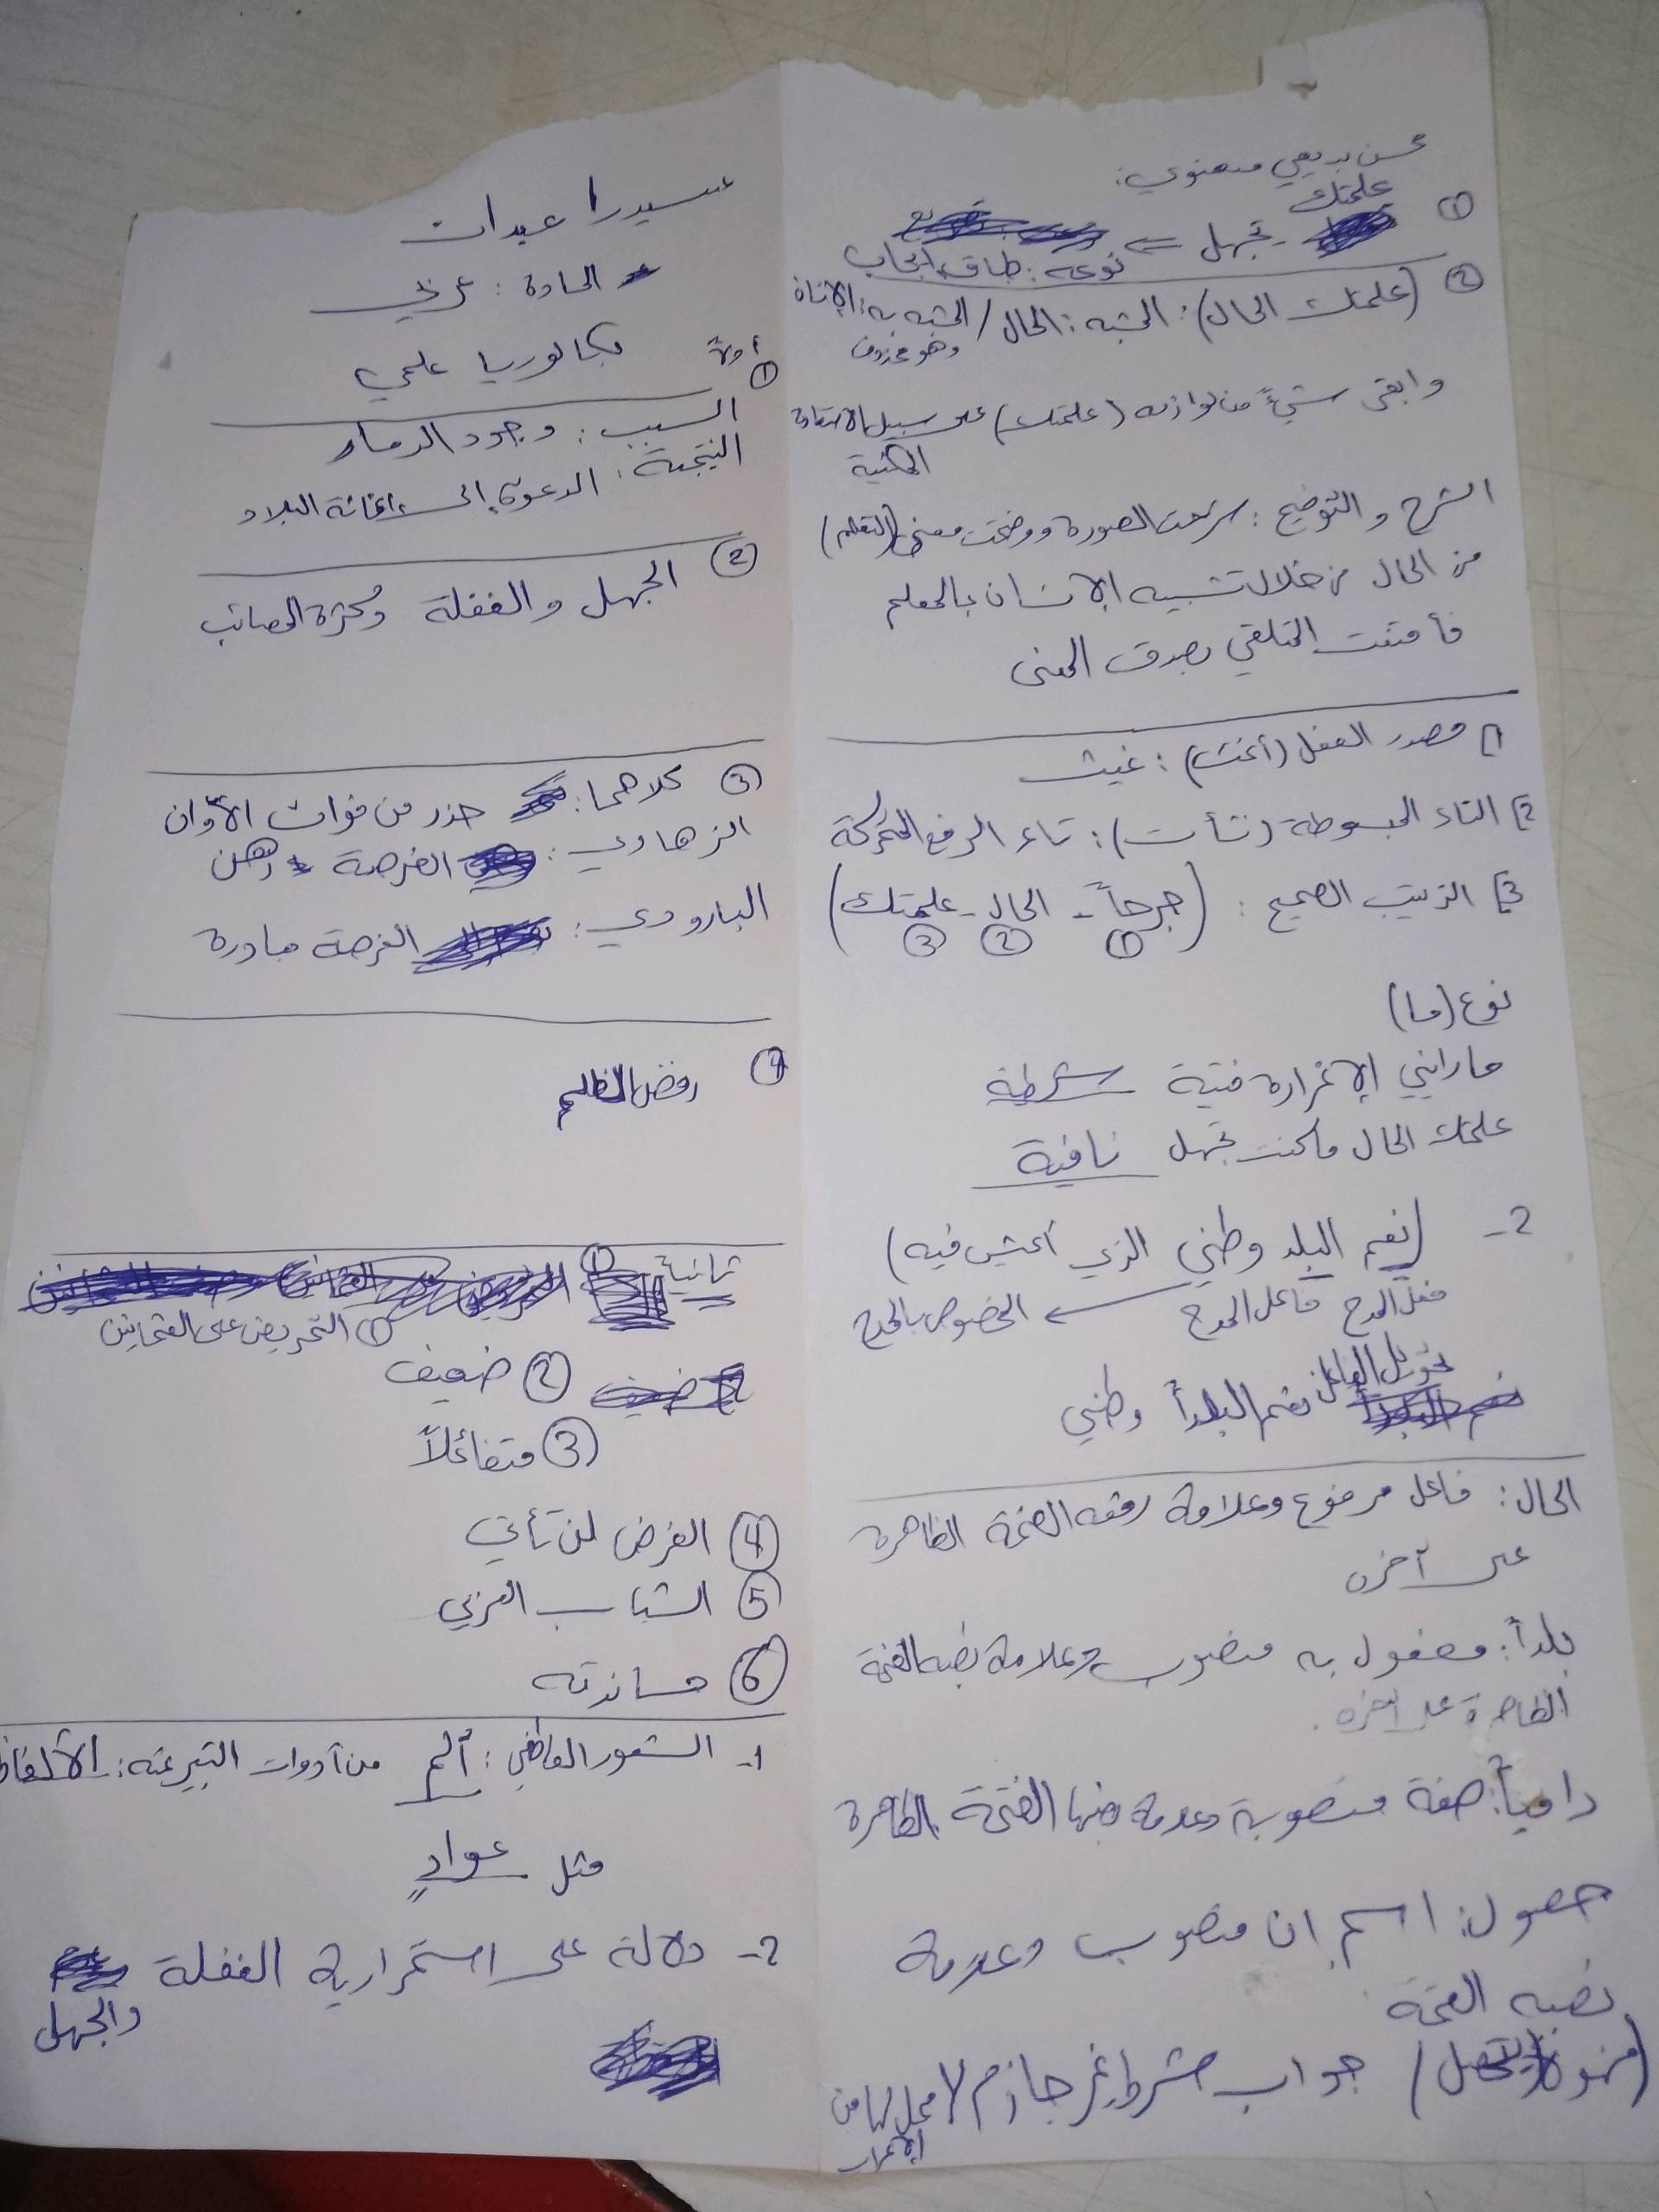 سيدرا عبيدات
المادة: عربي
بكالوريا علمي
أولاً
① السبب: وجود الدمار
النتيجة: الدعوة إلى إغاثة البلاد
② الجهل والغفلة وكثرة المصائب
③ كلاهما: حذر من فوات الأوان
الزهاوي: الفرصة رهن
البارودي: الفرصة مبادرة
④ رفض الظلم
ثانياً
① التحريض على
② ضعيف
③ متفائلاً
④ الفرص لن تأتي
⑤ الشباب العربي
⑥ مساندته
1- الشعور العاطفي: ألم من أدوات التعبير عنه: الألفاظ
مثل عوادٍ
2- دلالة على استمرارية الغفلة
والجهل
محسن بديعي معنوي:
① علمتك - تجهل ⇐
نوعه: طباق إيجاب
② (علمتك الحال): المشبه: الحال / المشبه به: الإنسان
وهو محذوف
وابقى شيءً من لوازمه (علمتك) على سبيل الاستعارة
المكنية
الشرح والتوضيح: شرحت الصورة ووضحت معنى (التعلم)
من الحال من خلال تشبيه الإنسان بالمعلم
فأقنعت المتلقي بصدق المعنى
1] مصدر الفعل (أغث): غيث
2] التاء المبسوطة (نشأت): تاء الرفع المتحركة
3] الترتيب الصحيح: (جرحاً - الحال - علمتك)
① ② ③
نوع (ما)
ما رابني إلا غرارة فتية شرطية
علمتك الحال ما كنت تجهل نافية
2- (نعم البلد وطني الذي أعيش فيه)
فعل المدح فاعل المدح ← المخصوص بالمدح
تحويل الفاعل نعم البلداً وطني
الحال: فاعل مرفوع وعلامة رفعه الضمة الظاهرة
على آخره
بلداً: مفعول به منصوب وعلامة نصبه الفتحة
الظاهرة على آخره.
دامياً: صفة منصوبة وعلامة نصبها الفتحة الظاهرة
حصول: اسم إن منصوب وعلامة
نصبه الفتحة
جواب شرط غير جازم لا محل لها من
الإعراب